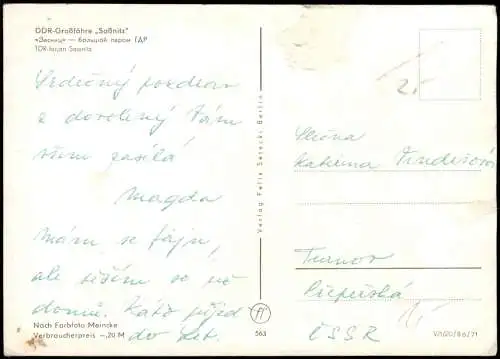 DDR-Großfähre „Saßnitz"
«Засниц» — большой паром ГДР
TDR-färjan Sassnitz
Srdečný pozdrav
z dovolený Vám
všem posílá
Magda
Mám se fajn,
ale těším se už
domů.
do let.
Nach Farbfoto Meincke
Verbraucherpreis —,20 M
Verlag Felix Setecki, Berlin
563
Slečna
Kateřina
Turnov
ČSSR
V/1/20/86/71